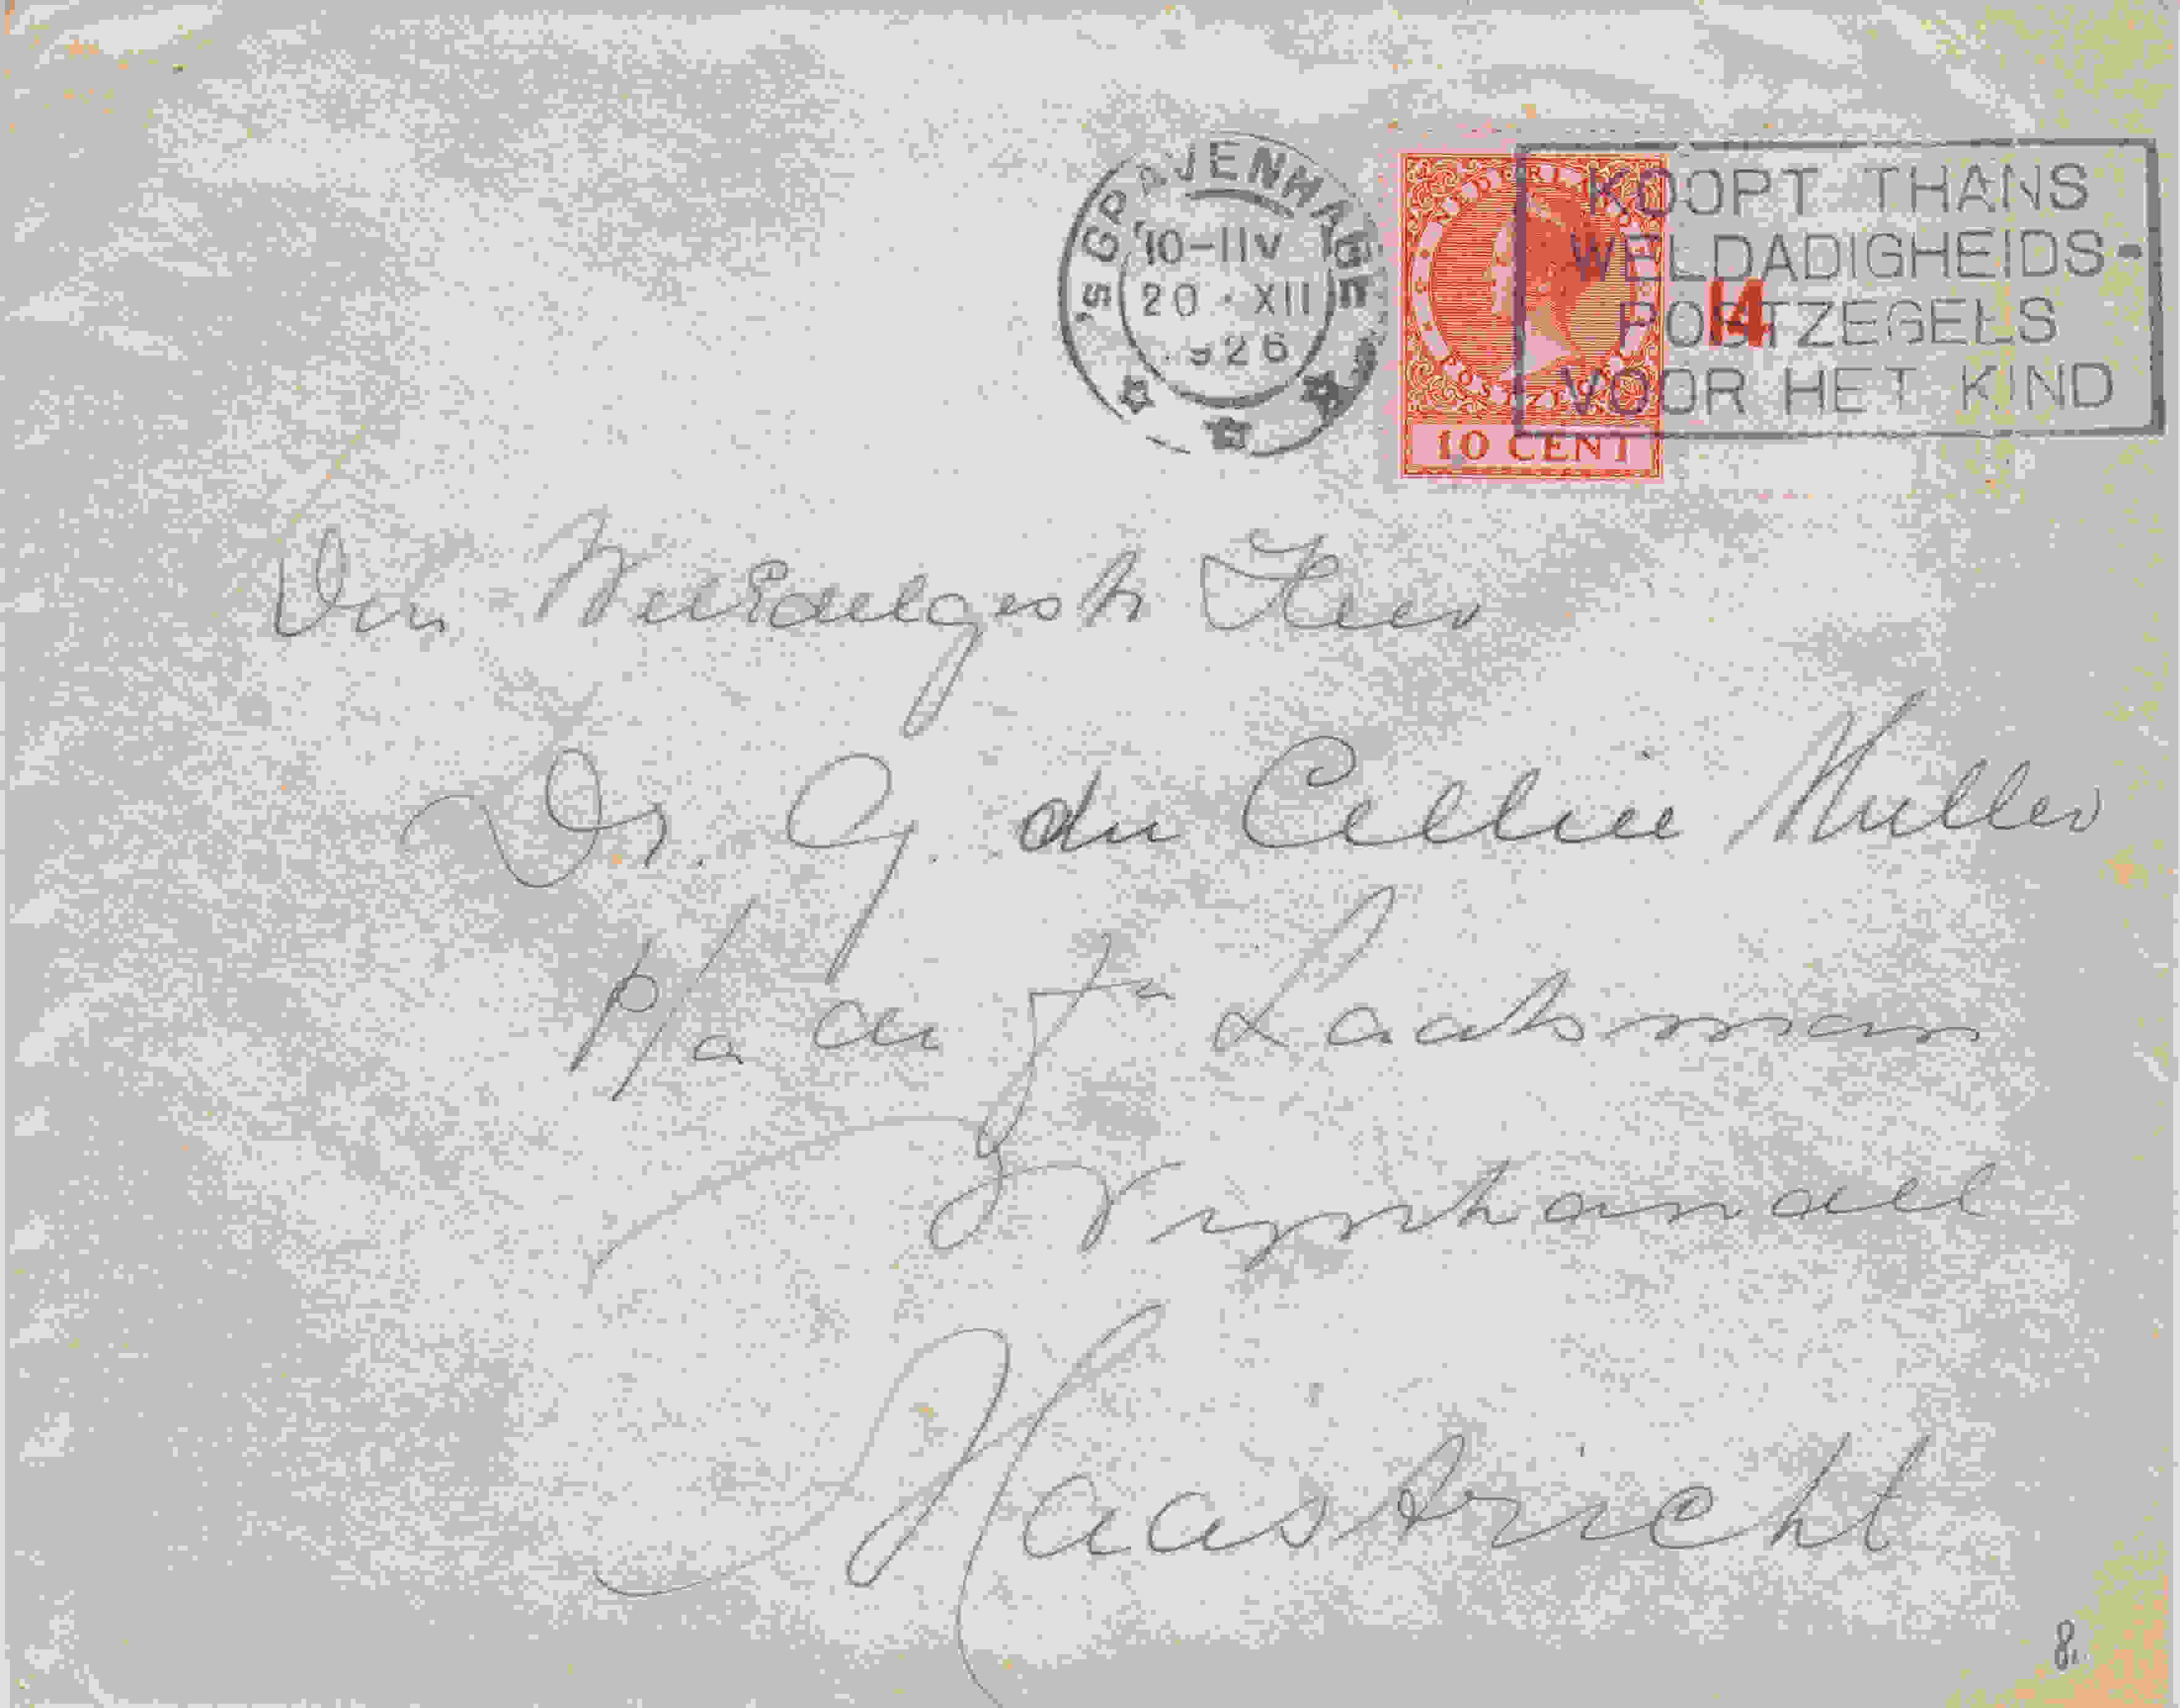 'S GRAVENHAGE
10-11V
20 · XII
1926
NEDERLAND
POSTZEGEL
10 CENT
KOOPT THANS
WELDADIGHEIDS-
POSTZEGELS
VOOR HET KIND
14
Den WelEdelgestr Heer
Dr. G. du Celliée Muller
p/a de Fa Laatsman
Wijnhandel
Haastricht
8.